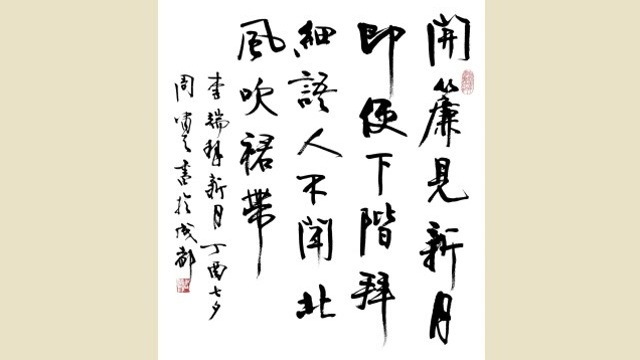 開簾見新月
即便下階拜
細語人不聞北
風吹裙帶
李端拜新月丁酉七夕
周嘯天書於成都